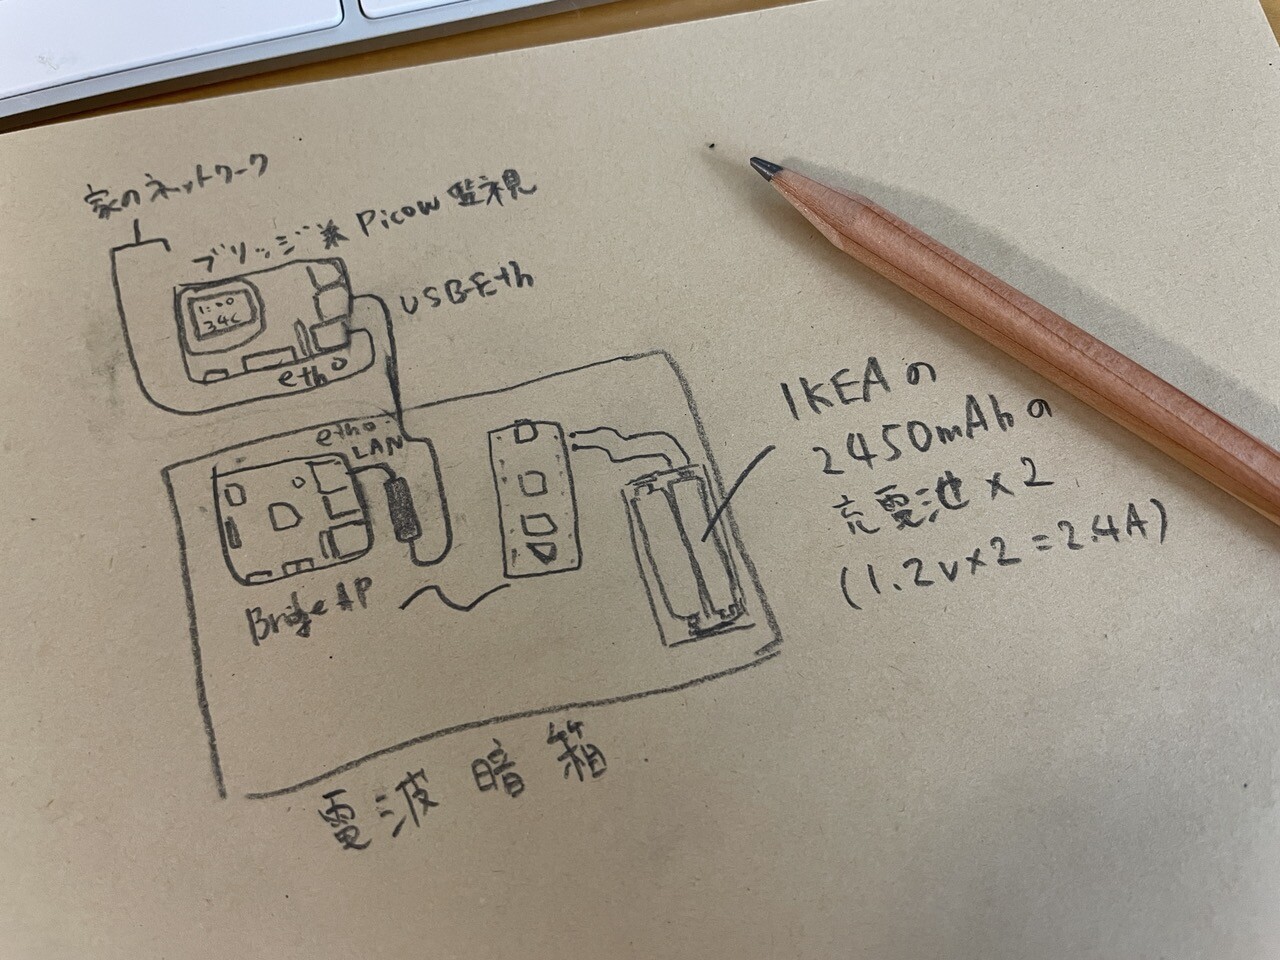 家のネットワーク
ブリッジ ※ Picow 監視
USB-Eth
1:00
34c
eth0
eth0
LAN
Bridge AP
IKEAの
2450mAhの
充電池×2
(1.2v×2=2.4A)
電波暗箱